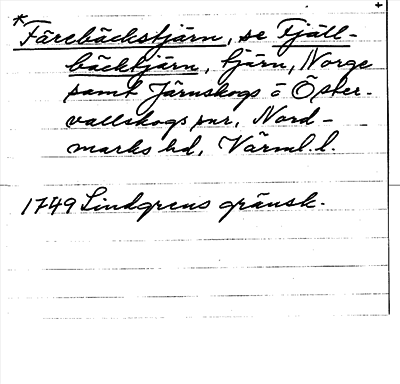 *Färebäckstjärn, se Fjäll-
bäcktjärn, tjärn, Norge
samt Järnskogs o Öster-
vallskogs snr, Nord-
marks hd, Värml. l.
1749 Lindgrens gränsk.